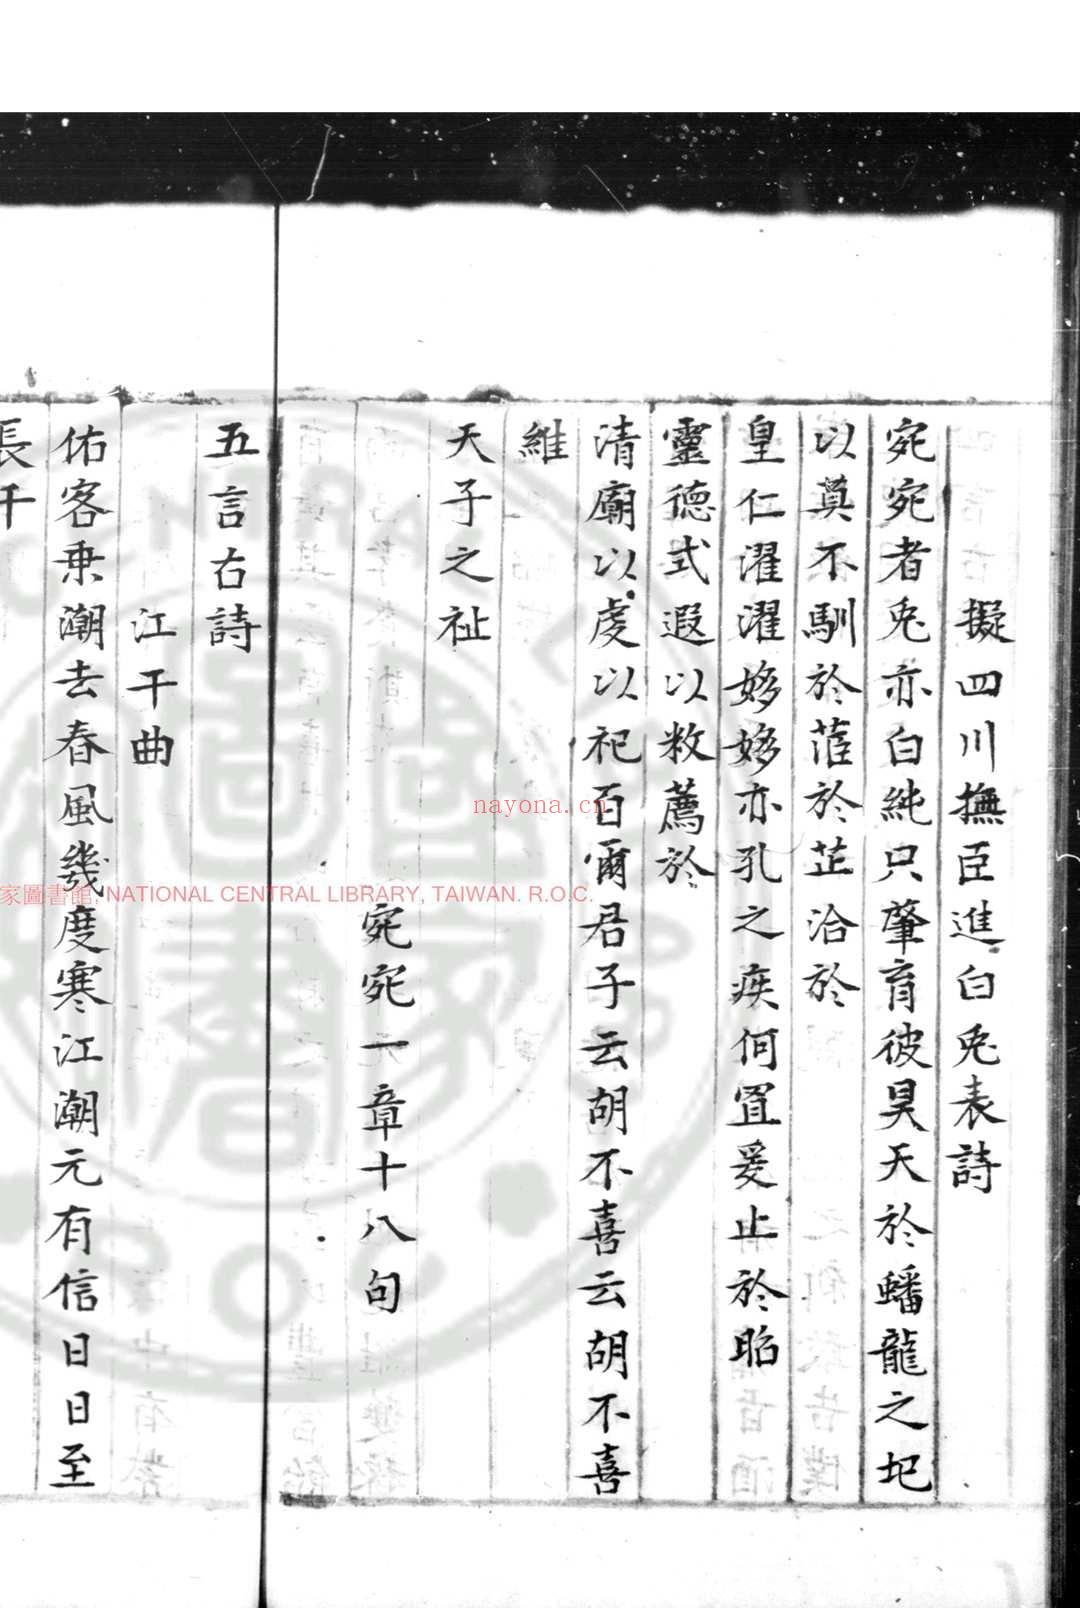 擬四川撫臣進白兎表詩
宛宛者兎亦白純只肇育彼昊天於蟠龍之圯
以莫不馴於菹於芷洽於
皇仁濯濯姼姼亦孔之疾何罝爰止於昭
靈德式遐以敉薦於
清廟以虔以祀百爾君子云胡不喜云胡不喜
維
天子之祉
宛宛一章十八句
五言古詩
江干曲
估客乗潮去春風幾度寒江潮元有信日日至
長干
nayona.cn
家圖書館, NATIONAL CENTRAL LIBRARY, TAIWAN. R.O.C.